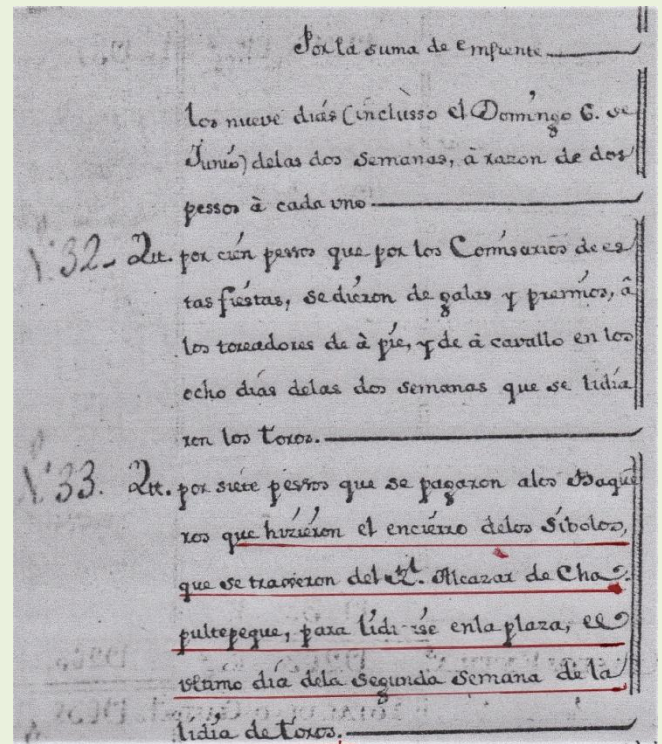 Por la suma de emfrente
los nueve diás (inclusso el Domingo 6. de
Junio) delas dos Semanas, à razon de dos
pessos à cada uno
N.32. Itt. por cién pessos que por los Comisarios de es
tas fiéstas, se diéron de galas y premios, â
los toreadores de à pié, y de à cavallo en los
ocho dias delas dos Semanas que se lidia
ron los toros.
N.33. Itt. por siéte pessos que se pagaron alos Baque
ros que hiziéron el enciérro delos Síbolos,
que se traxeron del Alcazar de Cha
pultepeque, para lidiarse enla plaza, el
ultimo dia dela segunda Semana de la
lidia de toros.